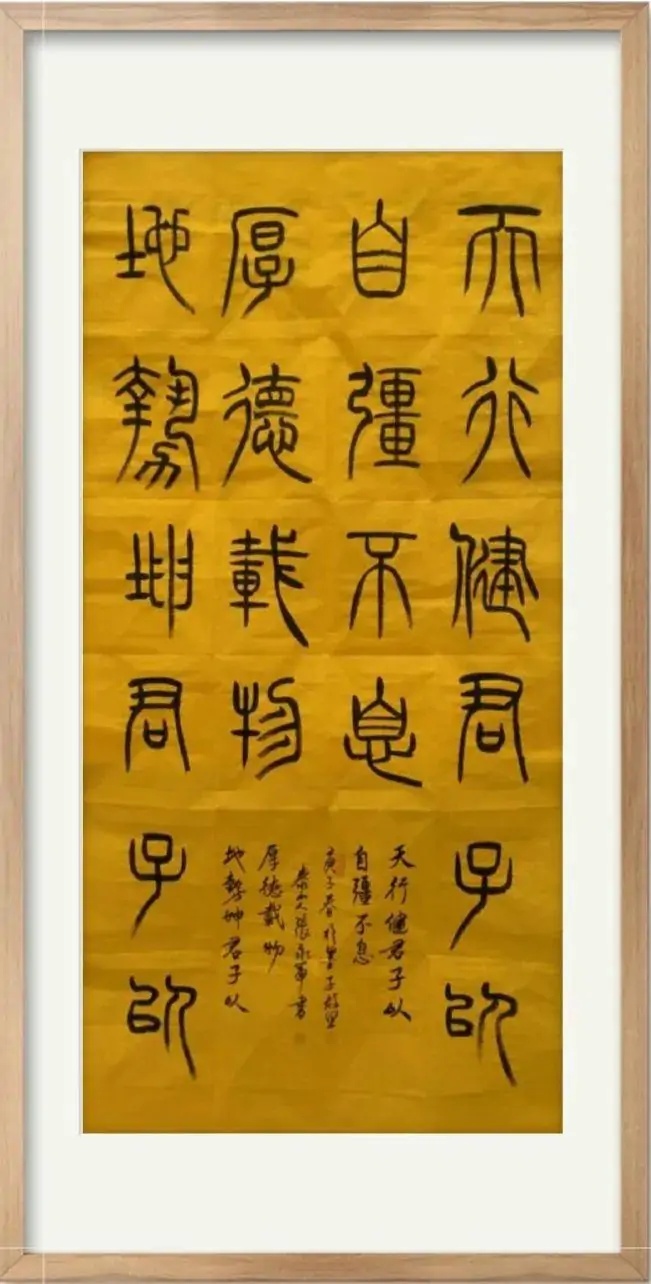 天行健君子以
自彊不息
地勢坤君子以
厚德載物
天行健君子以
自彊不息
庚子春於墨子故里
地勢坤君子以
厚德載物
張永書